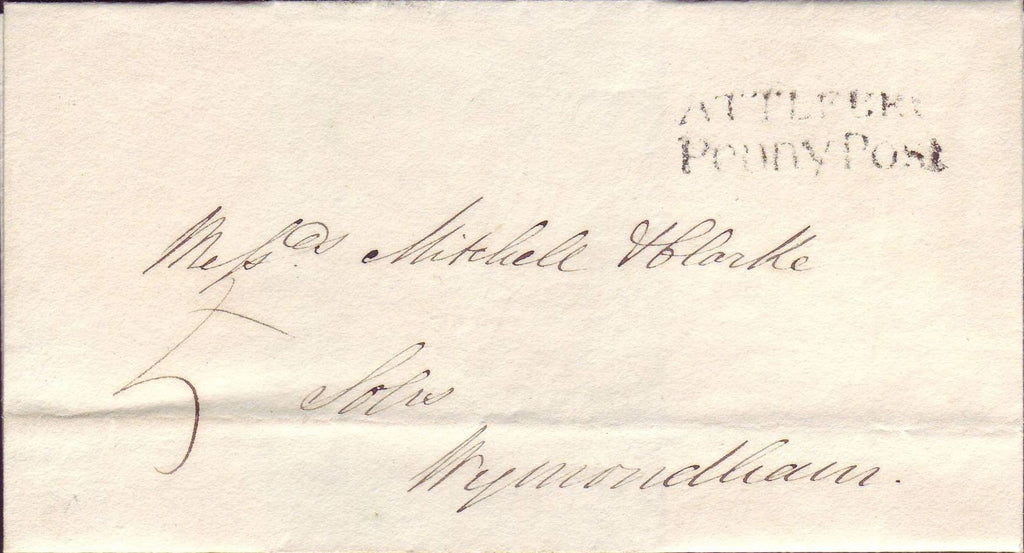 ATTLEBRO
Penny Post
Messrs Mitchell & Clarke
5
Solrs
Wymondham.